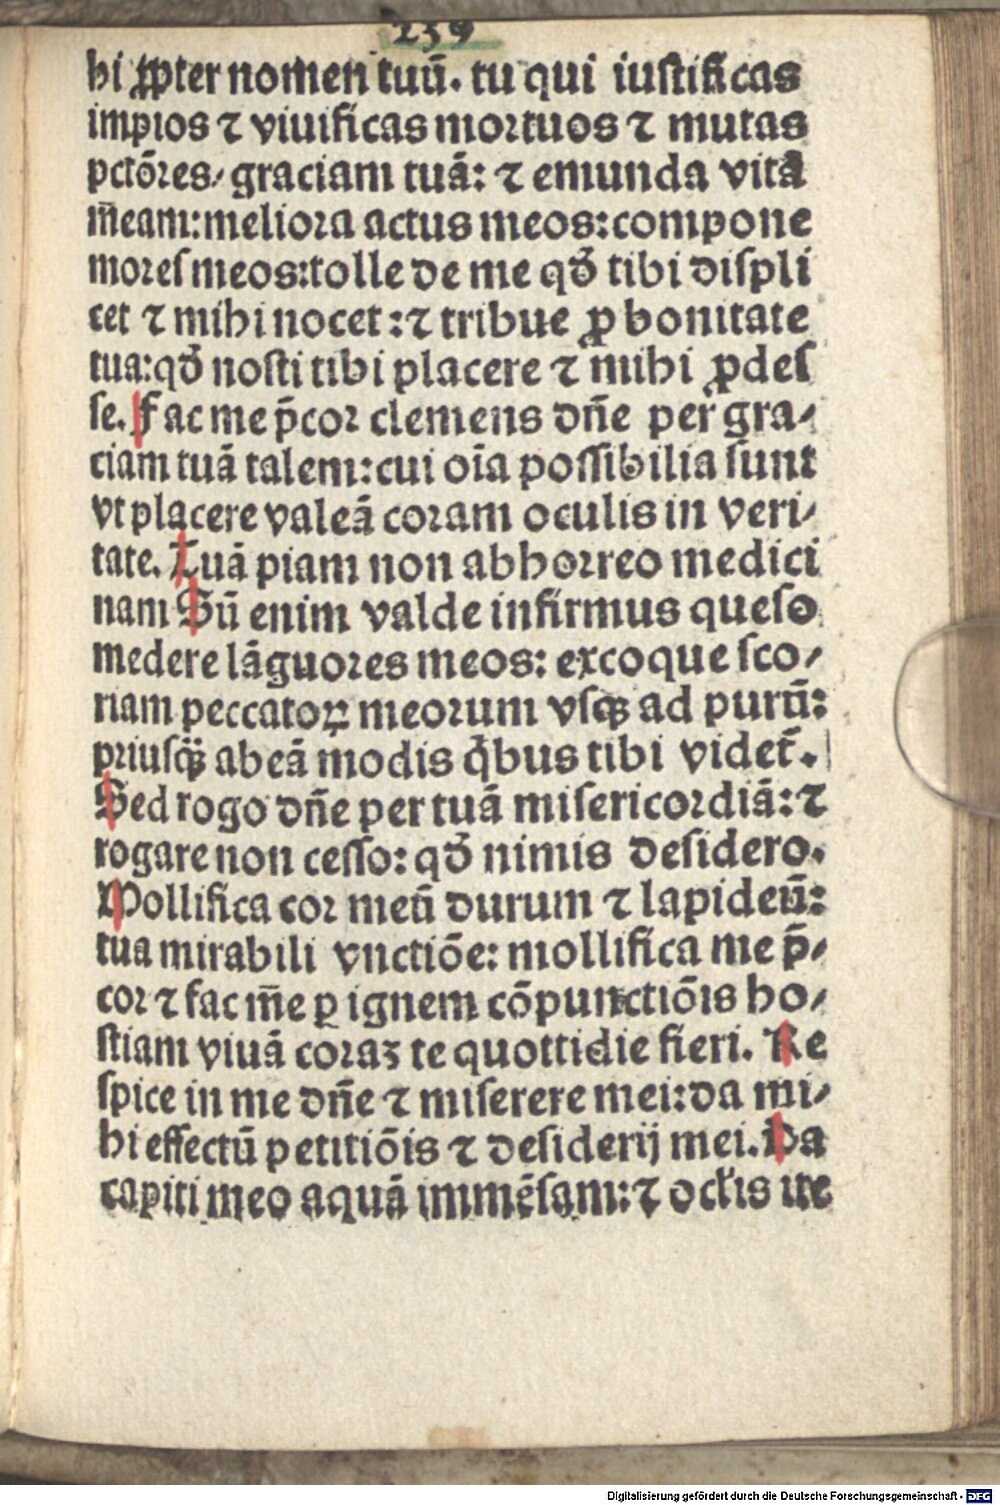 239
hi ꝓpter nomen tuū. tu qui iustificas
impios ⁊ viuificas mortuos ⁊ mutas
pctōres⸗ graciam tuā: ⁊ emunda vitā
m̄eam: meliora actus meos: compone
mores meos: tolle de me qđ tibi displi
cet ⁊ mihi nocet: ⁊ tribue ꝓ bonitate
tua: qđ nosti tibi placere ⁊ mihi ꝓdes
se. Fac me p̄cor clemens dn̄e per gra⸗
ciam tuā talem: cui oīa possibilia sunt
vt placere valeā coram oculis in veri⸗
tate. Tuā piam non abhorreo medici
nam Sū enim valde infirmus queso
medere lāguores meos: excoque sco⸗
riam peccatoꝝ meorum vsqꝫ ad purū:
priusqꝫ̄ abeā modis q̄bus tibi videt̄.
Sed rogo dn̄e per tuā misericordiā: ⁊
rogare non cesso: qđ nimis desidero.
Mollifica cor meū durum ⁊ lapideū:
tua mirabili vnctiōe: mollifica me p̄⸗
cor ⁊ fac m̄e ꝑ ignem cōpunctiōis ho⸗
stiam viuā coraꝫ te quottidie fieri. Re
spice in me dn̄e ⁊ miserere mei: da mi⸗
hi effectū petitiōis ⁊ desiderij mei. Da
capiti meo aquā immēsam: ⁊ ocl̄is me
Digitalisierung gefördert durch die Deutsche Forschungsgemeinschaft - DFG